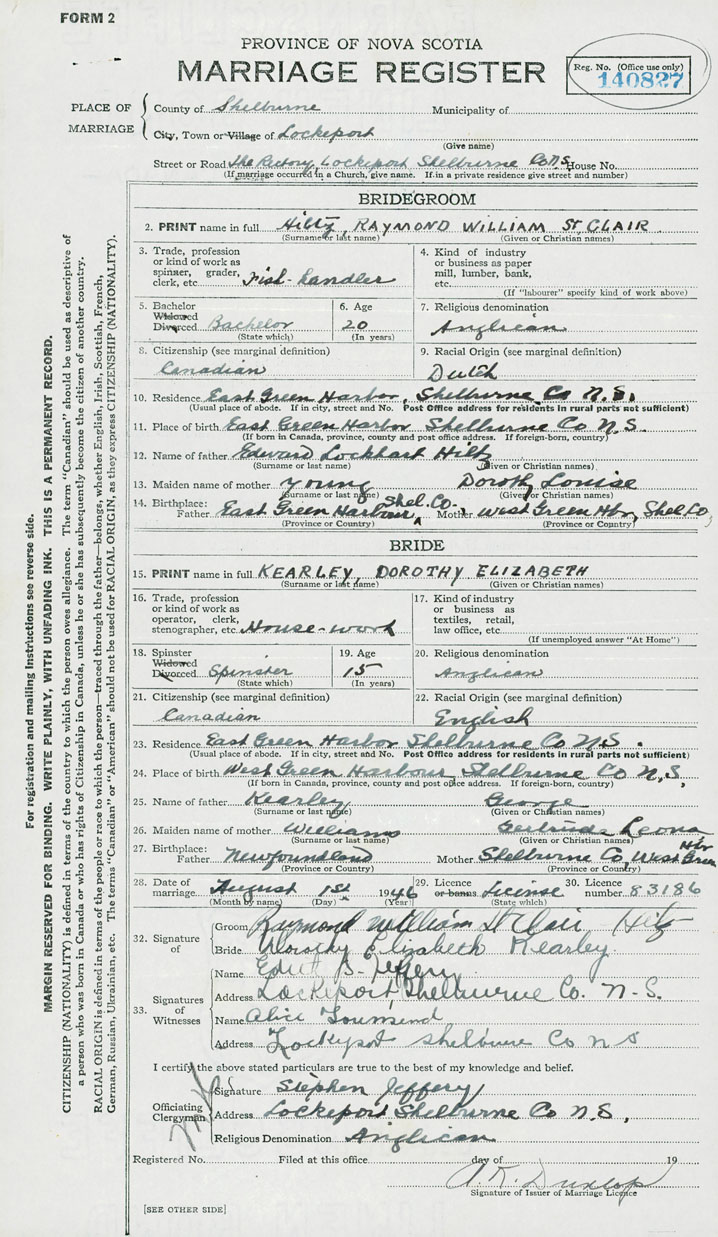 FORM 2
PROVINCE OF NOVA SCOTIA
MARRIAGE REGISTER
Reg. No. (Office use only)
140827
PLACE OF MARRIAGE
County of Shelburne Municipality of
City, Town or Village of Lockeport
(Give name)
Street or Road The Rectory, Lockeport Shelburne Co N.S. House No.
(If marriage occurred in a Church, give name. If in a private residence give street and number)
BRIDEGROOM
2. PRINT name in full Hiltz, RAYMOND WILLIAM ST CLAIR
(Surname or last name) (Given or Christian names)
3. Trade, profession or kind of work as spinner, grader, clerk, etc. Fish-handler
4. Kind of industry or business as paper mill, lumber, bank, etc.
(If "labourer" specify kind of work above)
5. Bachelor Widowed Divorced Bachelor
(State which)
6. Age 20
(In years)
7. Religious denomination
Anglican
8. Citizenship (see marginal definition)
Canadian
9. Racial Origin (see marginal definition)
Dutch
10. Residence East Green Harbor, Shelburne Co N.S.
(Usual place of abode. If in city, street and No. Post Office address for residents in rural parts not sufficient)
11. Place of birth East Green Harbor Shelburne Co N.S.
(If born in Canada, province, county and post office address. If foreign-born, country)
12. Name of father Edward Lockhart Hiltz
(Surname or last name) (Given or Christian names)
13. Maiden name of mother Young Dorothy Louise
(Surname or last name) (Given or Christian names)
14. Birthplace: Father East Green Harbour, Shel. Co. Mother West Green Hbr, Shel Co,
(Province or Country) (Province or Country)
BRIDE
15. PRINT name in full KEARLEY, DOROTHY ELIZABETH
(Surname or last name) (Given or Christian names)
16. Trade, profession or kind of work as operator, clerk, stenographer, etc. House-work
17. Kind of industry or business as textiles, retail, law office, etc.
(If unemployed answer "At Home")
18. Spinster Widowed Divorced Spinster
(State which)
19. Age 15
(In years)
20. Religious denomination
Anglican
21. Citizenship (see marginal definition)
Canadian
22. Racial Origin (see marginal definition)
English
23. Residence East Green Harbor Shelburne Co N.S.
(Usual place of abode. If in city, street and No. Post Office address for residents in rural parts not sufficient)
24. Place of birth West Green Harbour, Shelburne Co N.S,
(If born in Canada, province, county and post office address. If foreign-born, country)
25. Name of father Kearley George
(Surname or last name) (Given or Christian names)
26. Maiden name of mother Williams Gertrude Leona
(Surname or last name) (Given or Christian names)
27. Birthplace: Father Newfoundland Mother Shelburne Co, West Green Hbr
(Province or Country) (Province or Country)
28. Date of marriage August 1st 1946
(Month by name) (Day) (Year)
29. Licence or banns License
(State which)
30. Licence number 83186
32. Signature of
Groom Raymond William St Clair Hiltz
Bride Dorothy Elizabeth Kearley.
33. Signatures of Witnesses
Name Edith B. Jeffery
Address Lockeport, Shelburne Co. N-S.
Name Alice Townsend
Address Lockeport Shelburne Co N S
I certify the above stated particulars are true to the best of my knowledge and belief.
Officiating Clergyman
Signature Stephen Jeffery
Address Lockeport Shelburne Co N.S,
Religious Denomination Anglican
Registered No. Filed at this office day of 19
A. K. Dunlop
Signature of Issuer of Marriage Licence
[SEE OTHER SIDE]
For registration and mailing Instructions see reverse side.
MARGIN RESERVED FOR BINDING. WRITE PLAINLY, WITH UNFADING INK. THIS IS A PERMANENT RECORD.
CITIZENSHIP (NATIONALITY) is defined in terms of the country to which the person owes allegiance. The term "Canadian" should be used as descriptive of
a person who was born in Canada or who has rights of Citizenship in Canada, unless he or she has subsequently become the citizen of another country.
RACIAL ORIGIN is defined in terms of the people or race to which the person—traced through the father—belongs, whether English, Irish, Scottish, French,
German, Russian, Ukrainian, etc. The terms "Canadian" or "American" should not be used for RACIAL ORIGIN, as they express CITIZENSHIP (NATIONALITY).